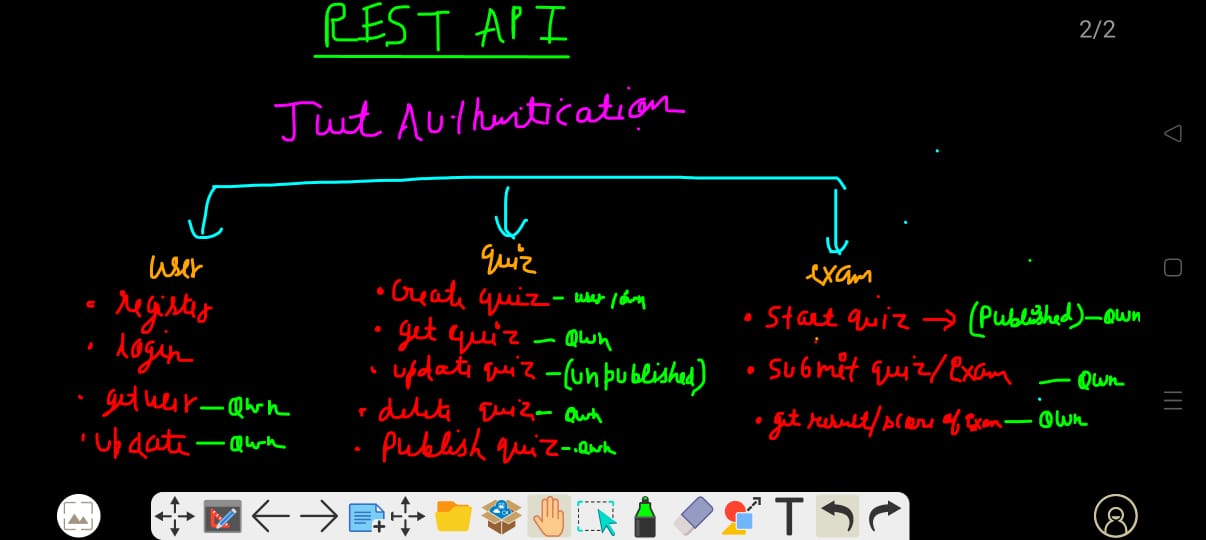 REST API
2/2
Jwt Authentication
user
quiz
exam
• register
• login
• get user — Own
• update — Own
• Create quiz – user/
• get quiz — Own
• update quiz – (unpublished)
• delete quiz – Own
• Publish quiz - Own
• Start quiz → (Published) – Own
• Submit quiz/Exam — Own
• get result/score of Exam — Own
T